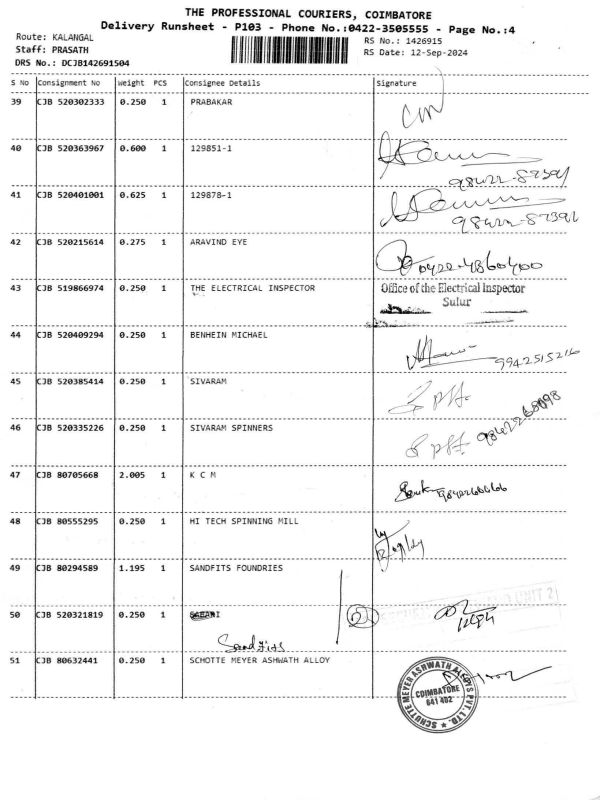 THE PROFESSIONAL COURIERS, COIMBATORE
Delivery Runsheet - P103 - Phone No.:0422-3505555 - Page No.:4
Route: KALANGAL
RS No.: 1426915
Staff: PRASATH
RS Date: 12-Sep-2024
DRS No.: DCJB142691504
S No Consignment No Weight PCS Consignee Details Signature
39 CJB 520302333 0.250 1 PRABAKAR
40 CJB 520363967 0.600 1 129851-1
98422-87391
41 CJB 520401001 0.625 1 129878-1
98422-87391
42 CJB 520215614 0.275 1 ARAVIND EYE
0422-4360400
43 CJB 519866974 0.250 1 THE ELECTRICAL INSPECTOR Office of the Electrical Inspector
Sulur
44 CJB 520409294 0.250 1 BENHEIN MICHAEL
9942515216
45 CJB 520385414 0.250 1 SIVARAM
46 CJB 520335226 0.250 1 SIVARAM SPINNERS
9842268098
47 CJB 80705668 2.005 1 K C M
9842266666
48 CJB 80555295 0.250 1 HI TECH SPINNING MILL
49 CJB 80294589 1.195 1 SANDFITS FOUNDRIES
50 CJB 520321819 0.250 1
UNIT 2
Sandfits
51 CJB 80632441 0.250 1 SCHOTTE MEYER ASHWATH ALLOY
SCHOTTE MEYER ASHWATH ALLOYS PVT. LTD.
COIMBATORE
641 402